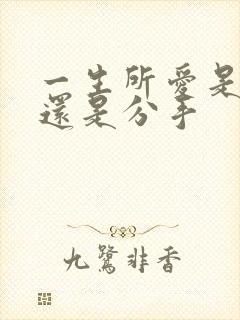 一生所愛是
還是分手
九鷺非香